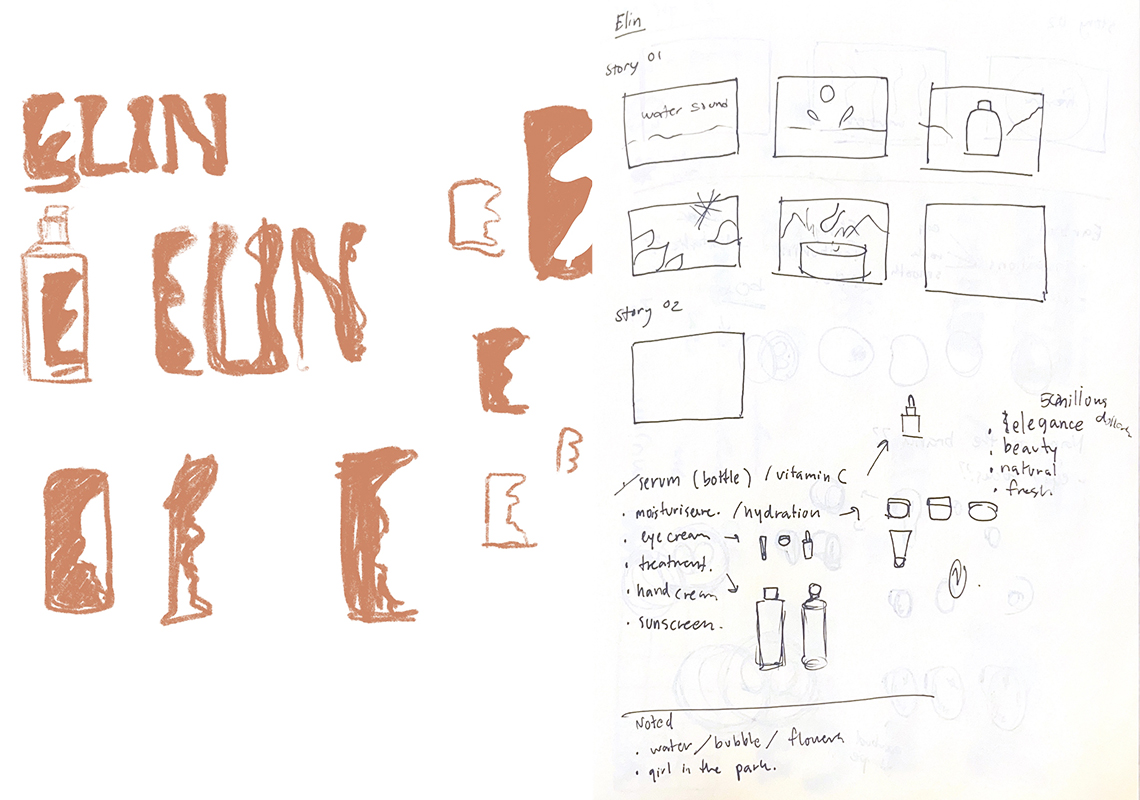 ELIN
E
ELIN
E
E
E
E
E
E
E
Elin
Story 01
water sound
Story 02
elegance
• beauty
• natural
• fresh.
serum (bottle) / vitamin C
• /hydration
• eye cream
• treatment.
• hand cream
• sunscreen.
Noted
• water / bubble / flowers
• girl in the park.